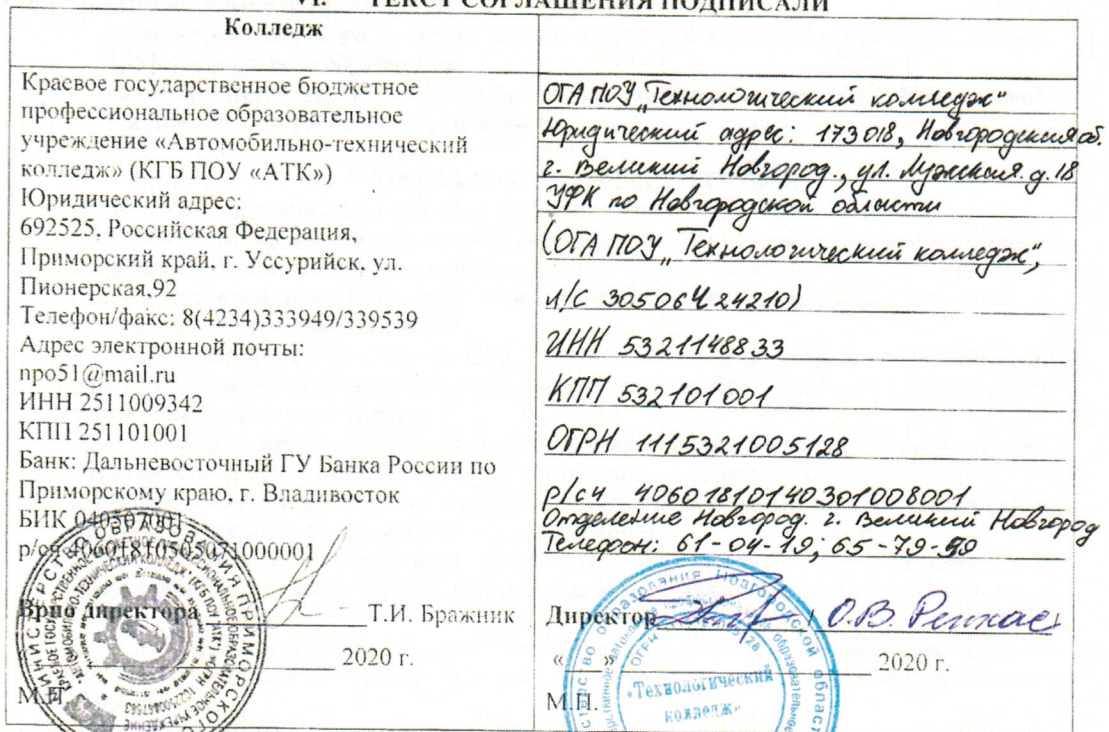 VI. ТЕКСТ СОГЛАШЕНИЯ ПОДПИСАЛИ
Колледж
Краевое государственное бюджетное
профессиональное образовательное
учреждение «Автомобильно-технический
колледж» (КГБ ПОУ «АТК»)
Юридический адрес:
692525, Российская Федерация,
Приморский край, г. Уссурийск, ул.
Пионерская,92
Телефон/факс: 8(4234)333949/339539
Адрес электронной почты:
npo51@mail.ru
ИНН 2511009342
КПП 251101001
Банк: Дальневосточный ГУ Банка России по
Приморскому краю, г. Владивосток
БИК 040507001
р/сч 40601810505071000001
Врио директора Т.И. Бражник
2020 г.
М.П.
ОГА ПОУ „Технологический колледж“
Юридический адрес: 173018, Новгородская об.
г. Великий Новгород., ул. Лужская д. 18
УФК по Новгородской области
(ОГА ПОУ „Технологический колледж“,
л/с 30506Ч24210)
ИНН 5321148833
КПП 532101001
ОГРН 1115321005128
р/сч 40601810140301008001
Отделение Новгород. г. Великий Новгород
Телефон: 61-04-19; 65-79-59
Директор / О.В.
«___» 2020 г.
М.П.
«Технологический
колледж»